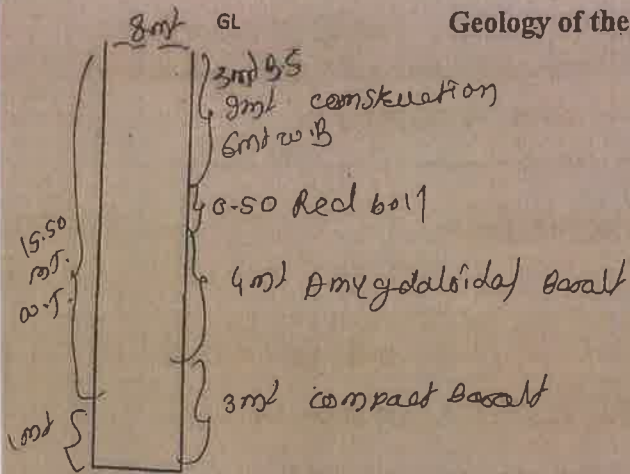 8 mt GL Geology of the
3mt B.S
9mt construction
6mt w.B
0.50 Red boll
15.50
mt.
w.T.
4mt Amygdaloidal Basalt
3mt compact Basalt
1mt